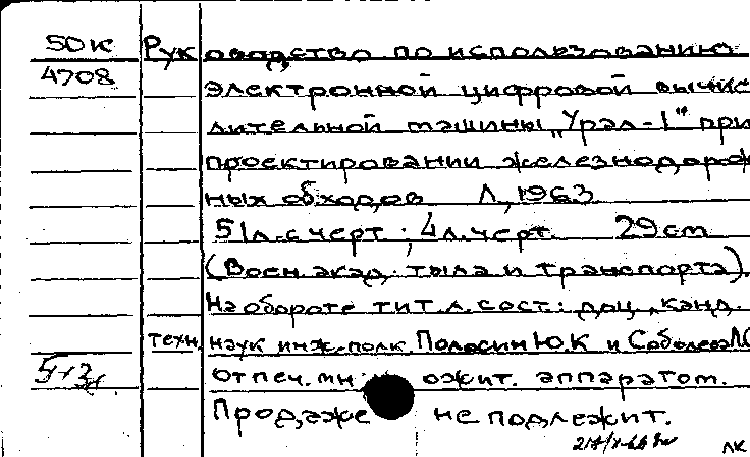 50к Руководство по использованию
4708 электронной цифровой вычис
лительной машины "Урал-1" при
проектировании железнодорож
ных обходов Л, 1963
51л.с черт.; 4л.черт. 29см
(Воен. акад. тыла и транспорта).
На обороте тит.л.сост.: доц., канд.
техн. наук инж.-полк. Полосин Ю.К и Соболева
Отпеч. мн ожит. аппаратом.
Продаже не подлежит.
лк